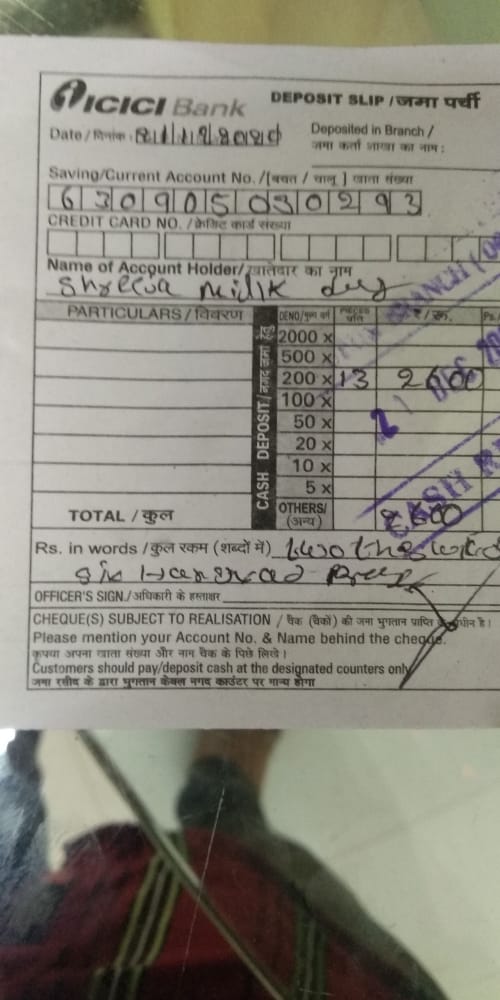 ICICI Bank DEPOSIT SLIP / जमा पर्ची
Date / दिनांक : Deposited in Branch /
जमा कर्ता शाखा का नाम :
Saving/Current Account No. /[बचत / चालू ] खाता संख्या
630905030293
CREDIT CARD NO. / क्रेडिट कार्ड संख्या
Name of Account Holder/ खातेदार का नाम
PARTICULARS / विवरण DENO/मूल्य वर्ग PIECES प्रति ₹ / रू. Ps.
CASH DEPOSIT/नगद जमा हेतु
2000 x
500 x
200 x 13 2600
100 x
50 x
20 x
10 x
5 x
TOTAL / कुल OTHERS/ (अन्य) 2,600
21 DEC
CASH
Rs. in words / कुल रकम (शब्दों में) two
six
OFFICER'S SIGN./अधिकारी के हस्ताक्षर
CHEQUE(S) SUBJECT TO REALISATION / चैक (चैकों) की जमा भुगतान प्राप्ति के अधीन है।
Please mention your Account No. & Name behind the cheque.
कृपया अपना खाता संख्या और नाम चैक के पिछे लिखे।
Customers should pay/deposit cash at the designated counters only
जमा रसीद के द्वारा भुगतान केवल नगद काउंटर पर मान्य होगा